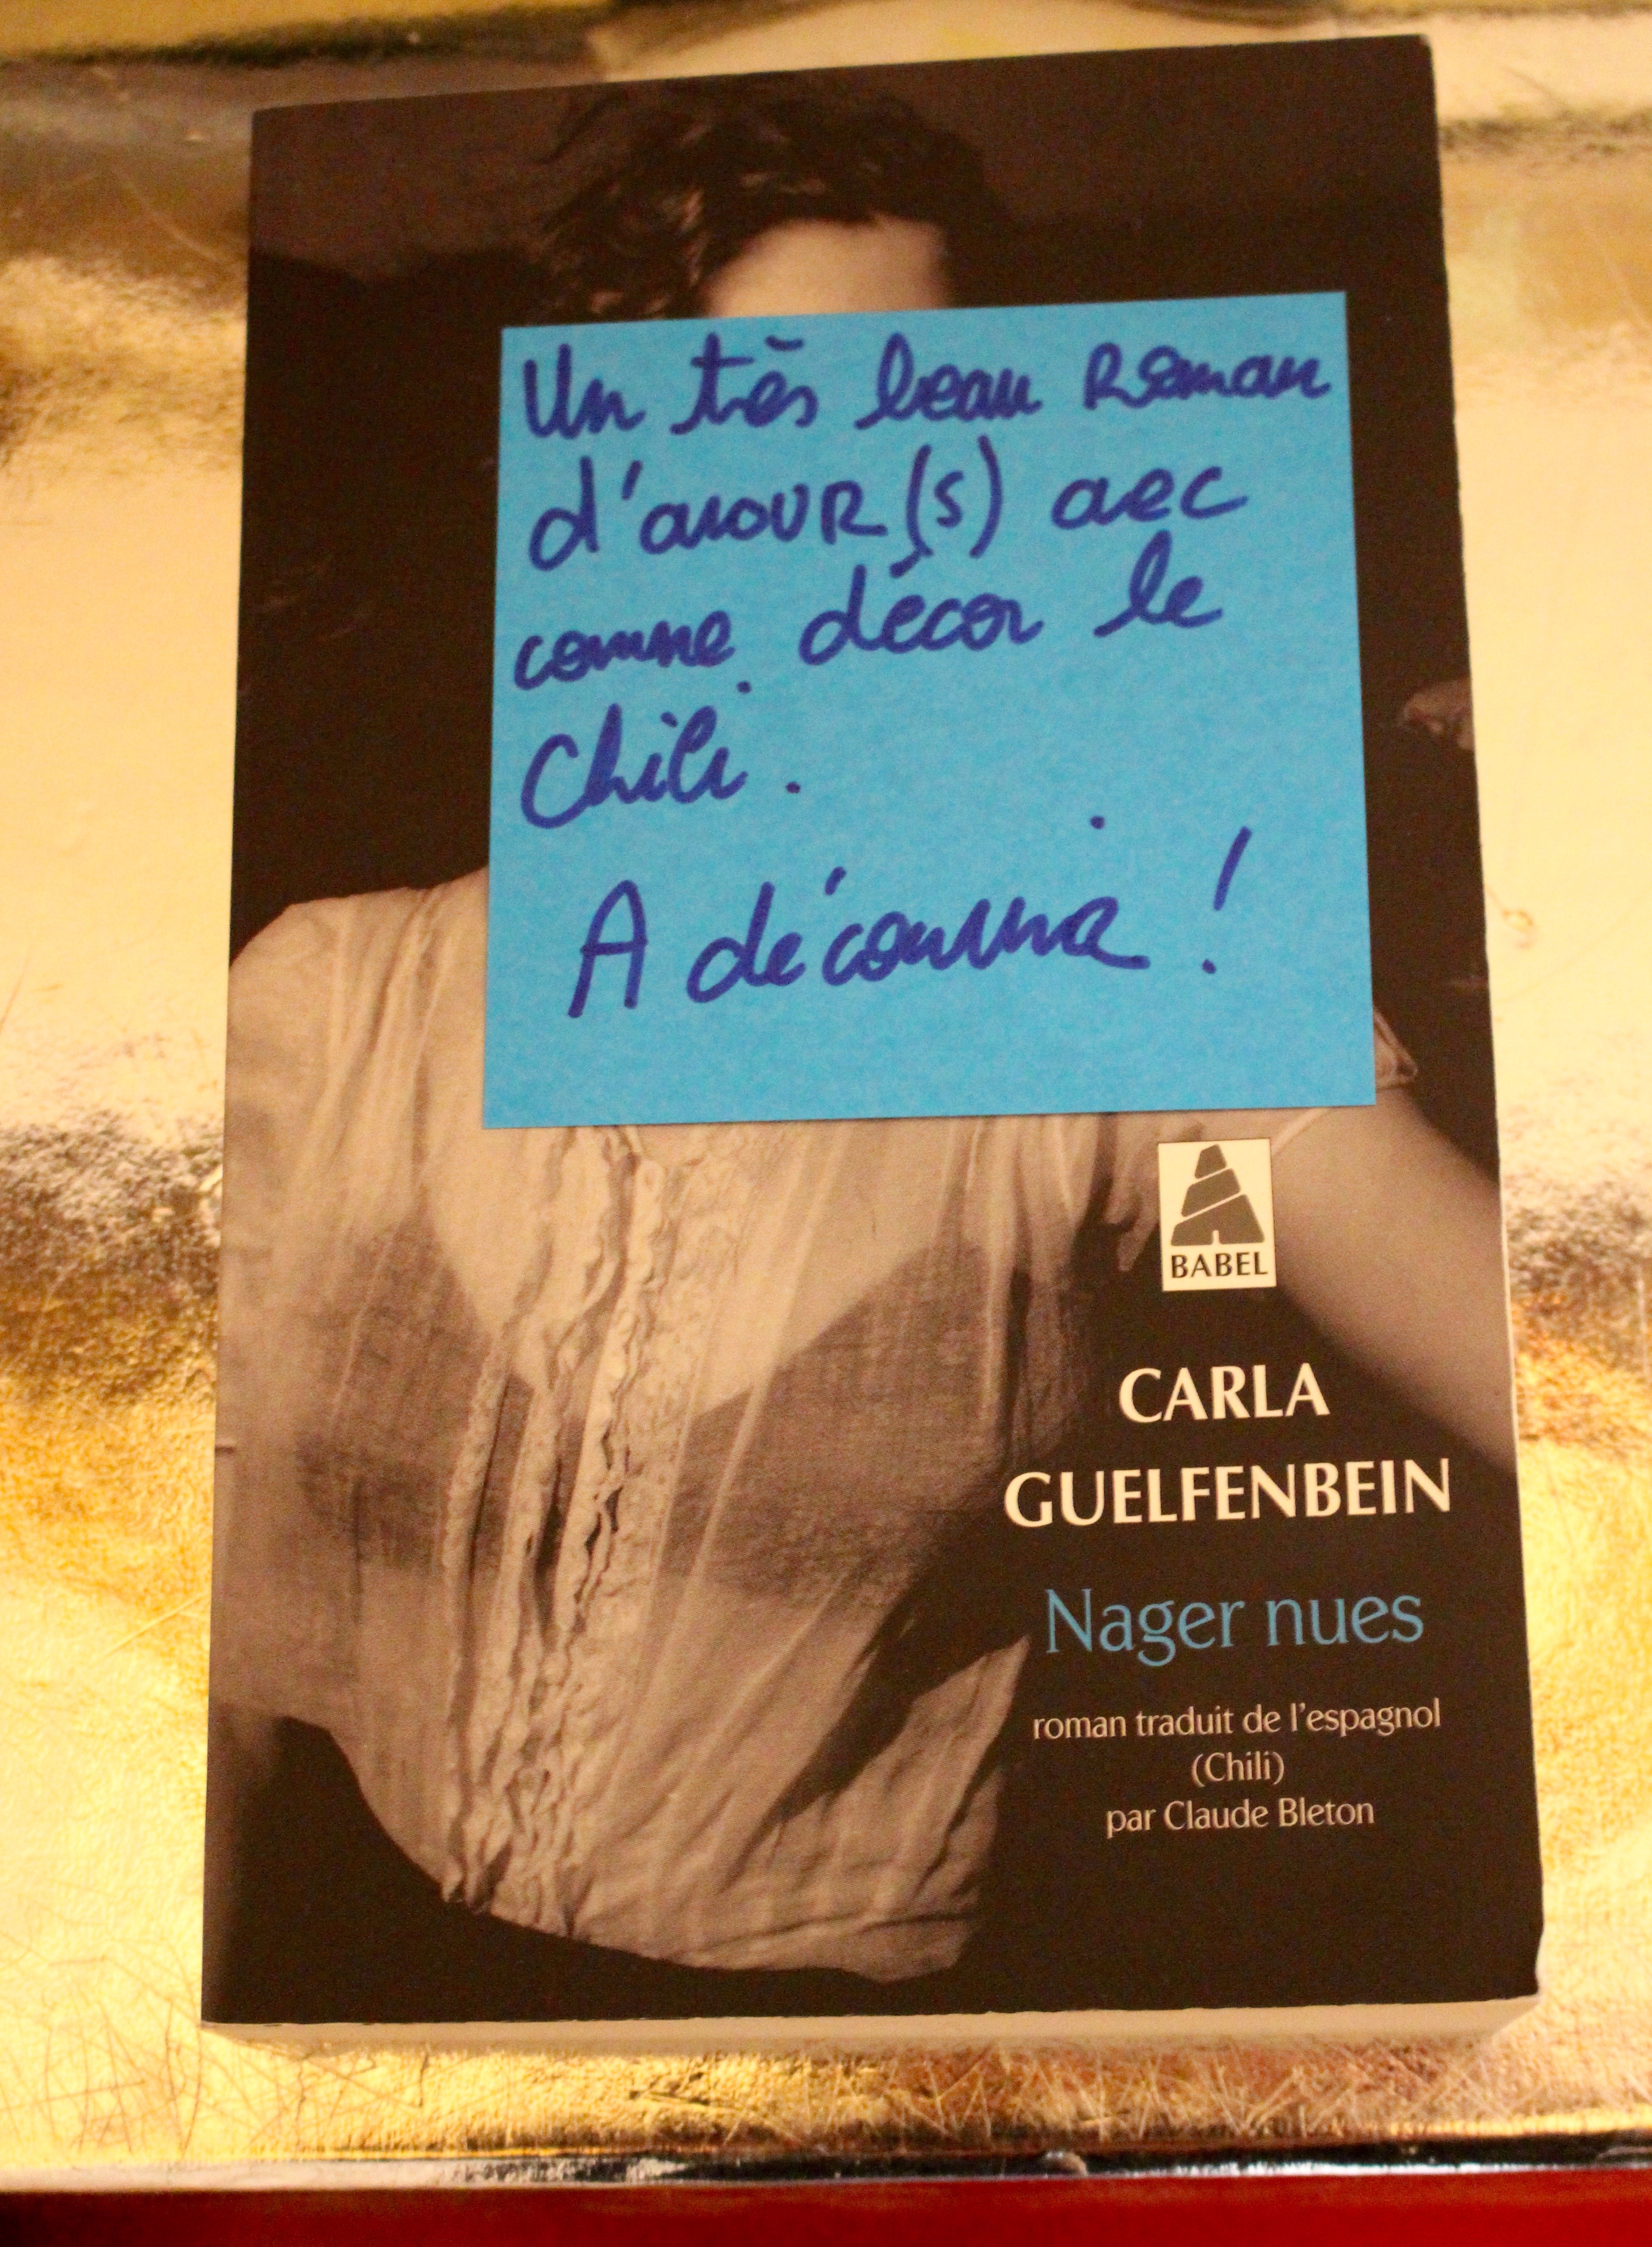 Un très beau Roman
d'amouR(s) avec
comme décor le
Chili.
A découvrir !
BABEL
CARLA
GUELFENBEIN
Nager nues
roman traduit de l'espagnol
(Chili)
par Claude Bleton